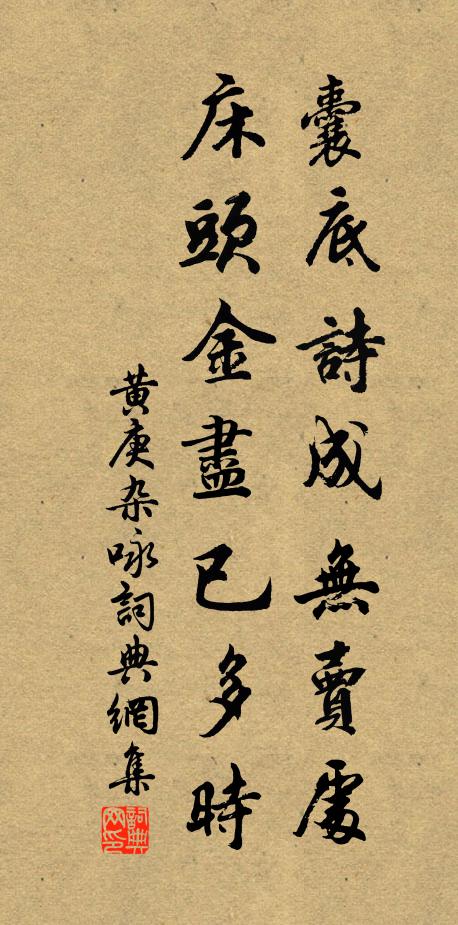 囊底詩成無賣處
床頭金盡已多時
黄庚杂咏詞典網集
詞典网印